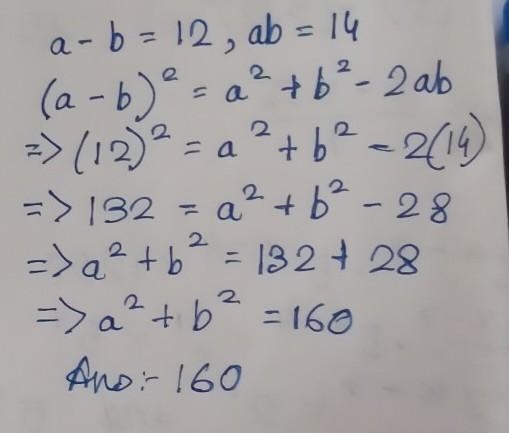 a - b = 12, ab = 14
(a - b)² = a² + b² - 2ab
=> (12)² = a² + b² - 2(14)
=> 132 = a² + b² - 28
=> a² + b² = 132 + 28
=> a² + b² = 160
Ans:- 160